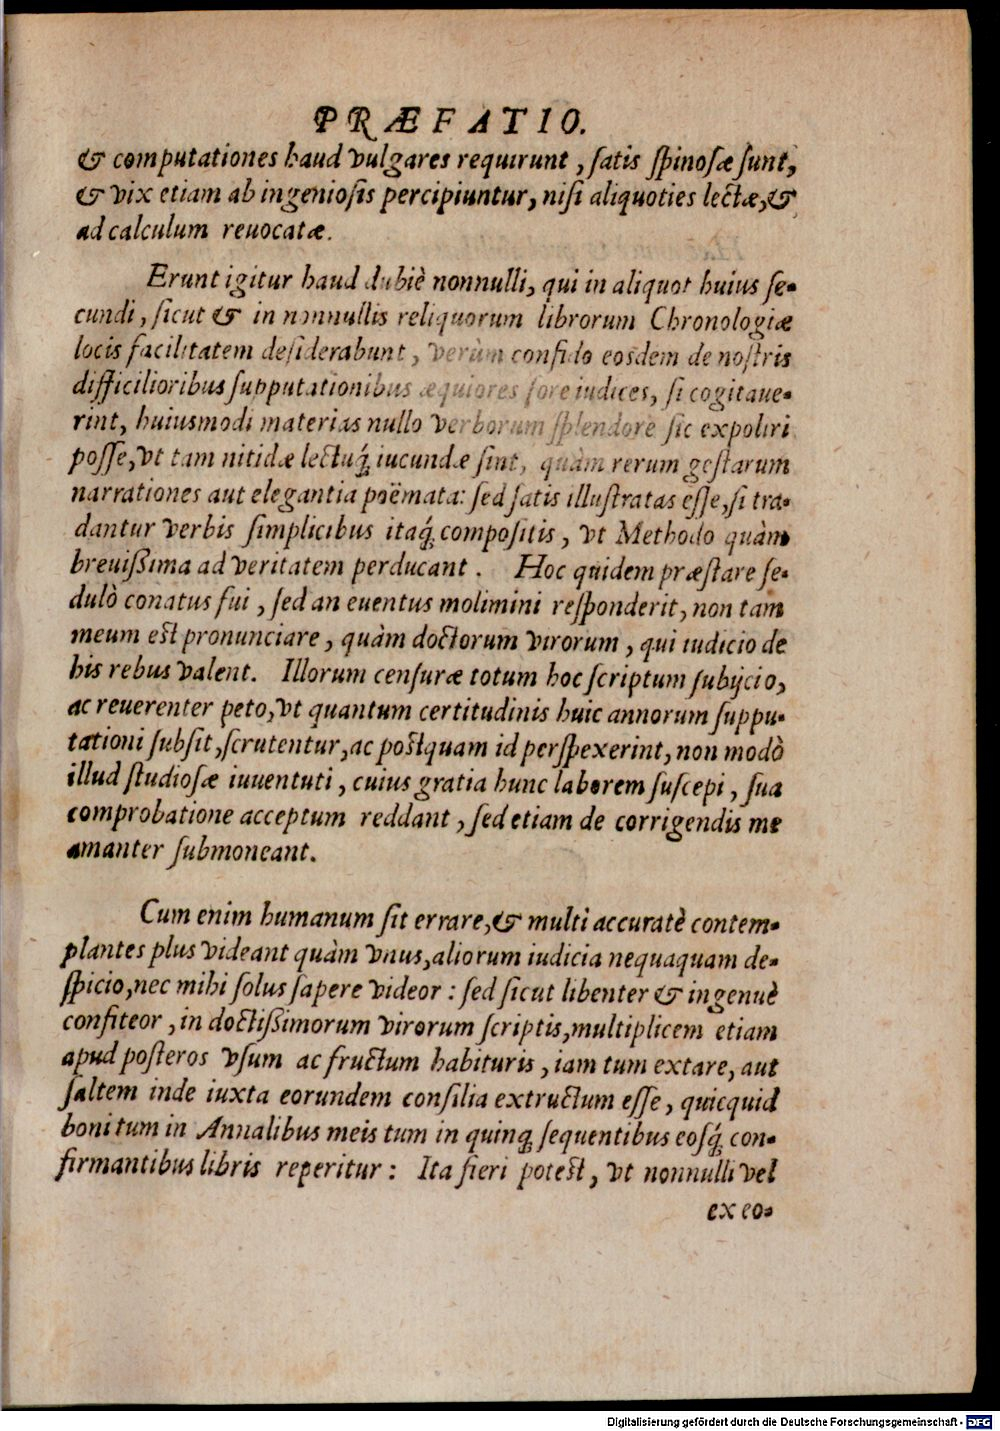 PRÆFATIO.
& computationes haud vulgares requirunt, ſatis ſpinoſæ ſunt,
& vix etiam ab ingenioſis percipiuntur, niſi aliquoties lectæ, &
ad calculum reuocatæ.
Erunt igitur haud dubiè nonnulli, qui in aliquot huius ſe-
cundi, ſicut & in nonnullis reliquorum librorum Chronologiæ
locis facilitatem deſiderabunt, verùm confido eosdem de noſtris
difficilioribus ſupputationibus æquiores fore iudices, ſi cogitaue-
rint, huiusmodi materias nullo verborum ſplendore ſic expoliri
poſſe, vt tam nitidæ lectuq́; iucundæ ſint, quàm rerum geſtarum
narrationes aut elegantia poëmata: ſed ſatis illuſtratas eſſe, ſi tra-
dantur verbis ſimplicibus itaq́; compoſitis, vt Methodo quàm
breuißima ad veritatem perducant. Hoc quidem præſtare ſe-
dulò conatus fui, ſed an euentus molimini reſponderit, non tam
meum eſt pronunciare, quàm doctorum virorum, qui iudicio de
his rebus valent. Illorum cenſuræ totum hoc ſcriptum ſubijcio,
ac reuerenter peto, vt quantum certitudinis huic annorum ſuppu-
tationi ſubſit, ſcrutentur, ac poſtquam id perſpexerint, non modò
illud ſtudioſæ iuuentuti, cuius gratia hunc laborem ſuſcepi, ſua
comprobatione acceptum reddant, ſed etiam de corrigendis me
amanter ſubmoneant.
Cum enim humanum ſit errare, & multi accuratè contem-
plantes plus videant quàm vnus, aliorum iudicia nequaquam de-
ſpicio, nec mihi ſolus ſapere videor: ſed ſicut libenter & ingenuè
confiteor, in doctißimorum virorum ſcriptis, multiplicem etiam
apud poſteros vſum ac fructum habituris, iam tum extare, aut
ſaltem inde iuxta eorundem conſilia extructum eſſe, quicquid
boni tum in Annalibus meis tum in quinq; ſequentibus eoſq́; con-
firmantibus libris reperitur: Ita fieri poteſt, vt nonnulli vel
ex eo-
Digitalisierung gefördert durch die Deutsche Forschungsgemeinschaft - DFG